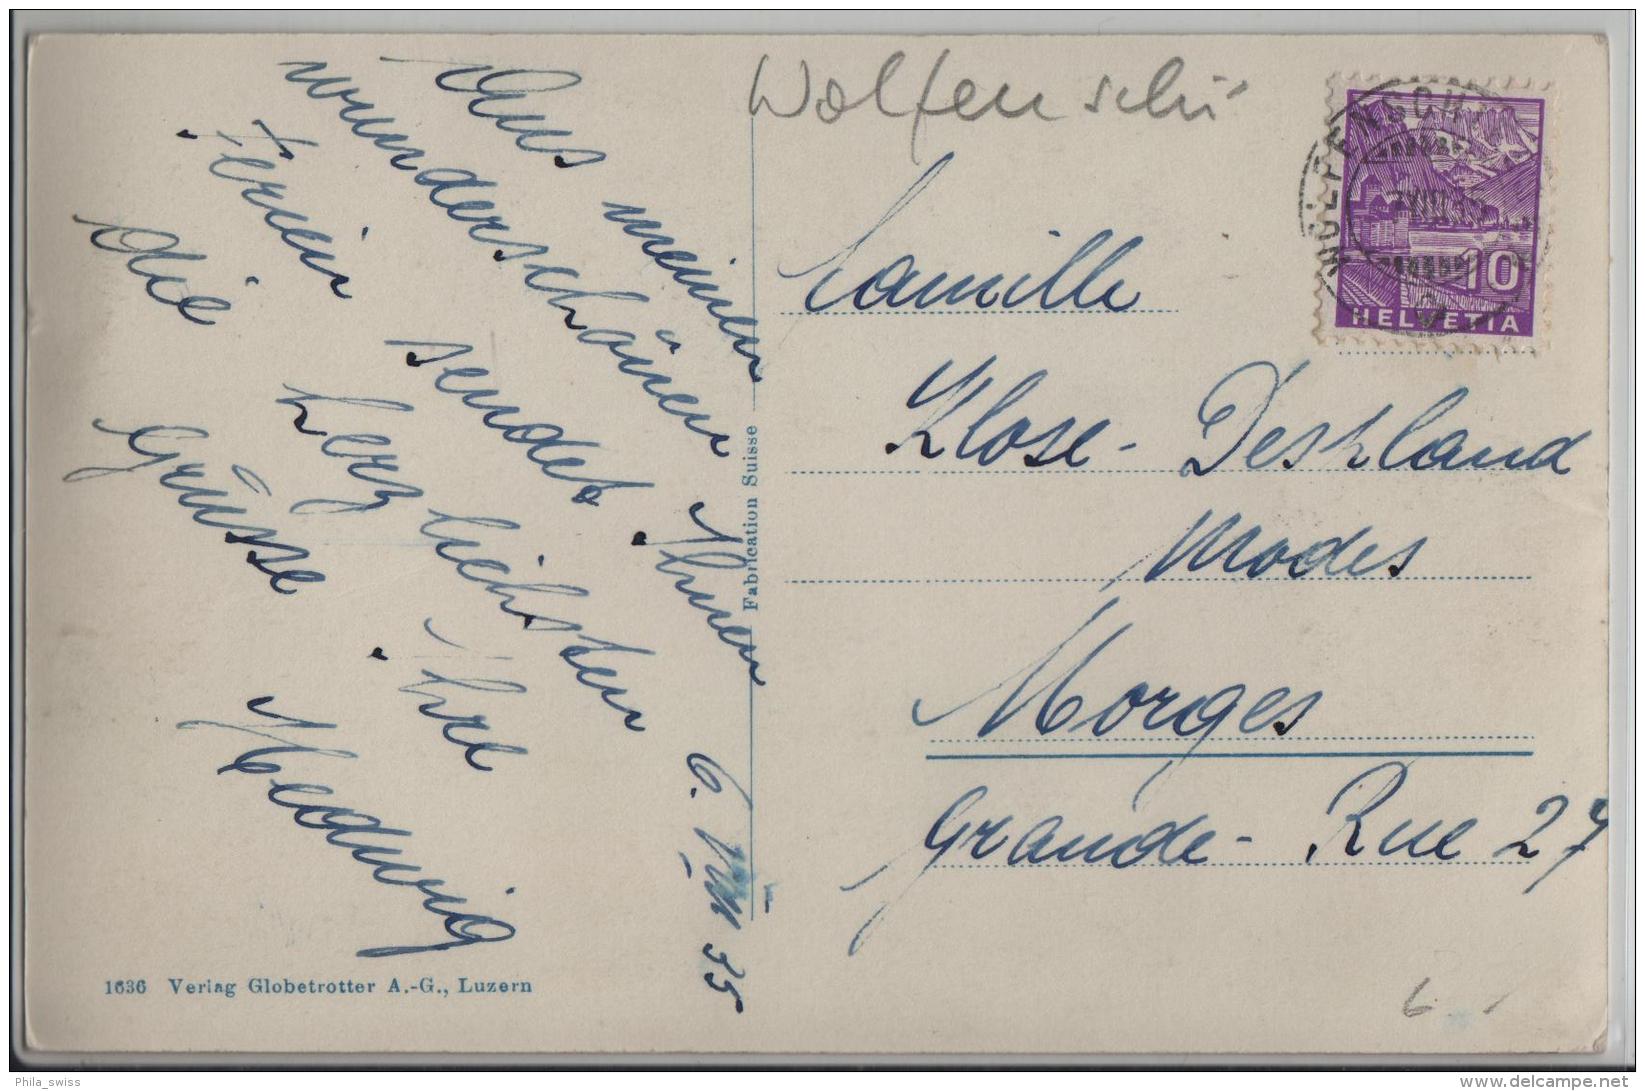 Aus meinen
wunderschönen
Ferien sendet Ihnen
die herzlichsten
Grüsse Ihre
Hedwig
6. VIII 35
1636 Verlag Globetrotter A.-G., Luzern
Fabrication Suisse
Wolfenschi
Famille
Klose - Deshland
Modes
Morges
Grande - Rue 27
10
HELVETIA
6.-
Phila_swiss
delcampe.net